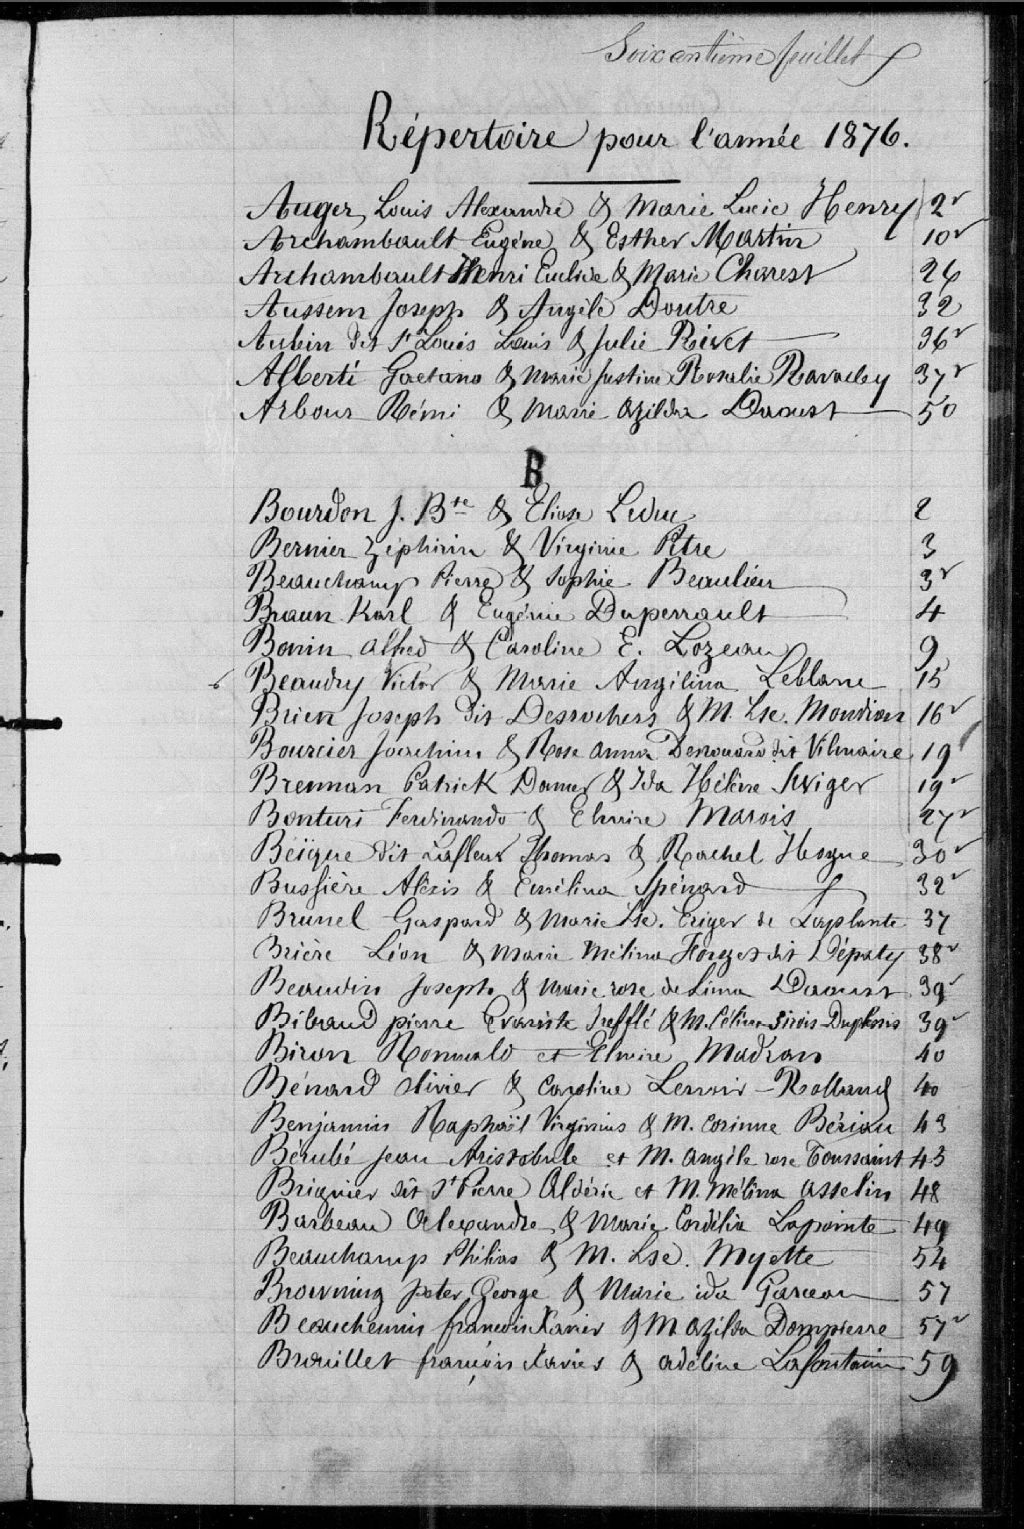 Soixantième feuillet
Répertoire pour l'année 1876.
Auger, Louis Alexandre & Marie Lucie Henry 2v
Archambault Eugène & Esther Martin 10v
Archambault Henri Euclide & Marie Charest 26
Aussem Joseph & Angèle Doutre 32
Aubin dit St Louis Louis & Julie Rivet 36v
Alberti Gaetano & Marie Justine Rosalie 37v
Arbour Rémi & Marie Azilda Daoust 50
B
Bourdon J. Bte & Eliose Leduc 2
Bernier Zéphirin & Virginie Pitre 3
Beauchamp Pierre & Sophie Beaulieu 3v
Braun Karl & Eugénie Duperrault 4
Bonin Alfred & Caroline E. Lozeau 9
Beaudry Victor & Marie Angélina Leblanc 15
Brien Joseph dit Desrochers & M. Lse. Mondion 16v
Bourcier Joachim & Rose Anna dit Vilmaire 19
Brennan Patrick Daniel & Ida Hélène Swiger 19v
Bonturi Ferdinando & Elmire Marois 27v
Béïque dit Lafleur Thomas & Rachel Hogue 30v
Bussière Alexis & Emélina Spénard 32v
Brunel Gaspard & Marie Lse. Truger de Laplante 37
Brière Léon & Marie Mélina Forget dit Dépaty 38v
Beaudin Joseph & Marie rose de Lima Daoust 39v
Bibaud pierre Evariste Trefflé & M. Célina Sirois-Duplessis 39v
Biron Romuald et Elmire Madran 40
Bénard Olivier & Caroline Lenoir-Rolland 40
Benjamin Raphaël Virginius & M. Corinne Bériau 43
Bérubé Jean Aristobule et M. Angèle rose Toussaint 43
Brignier dit St Pierre Aldéric et M. Mélina Asselin 48
Barbeau Alexandre & Marie Cordélia Lapointe 49
Beauchamp Philias & M. Lse. Myette 54
Browning Peter George & Marie ida Garceau 57
Beauchemin francois Xavier & M Azilda Dompierre 57v
Brouillet françois Xavier & adéline Lafontaine 59